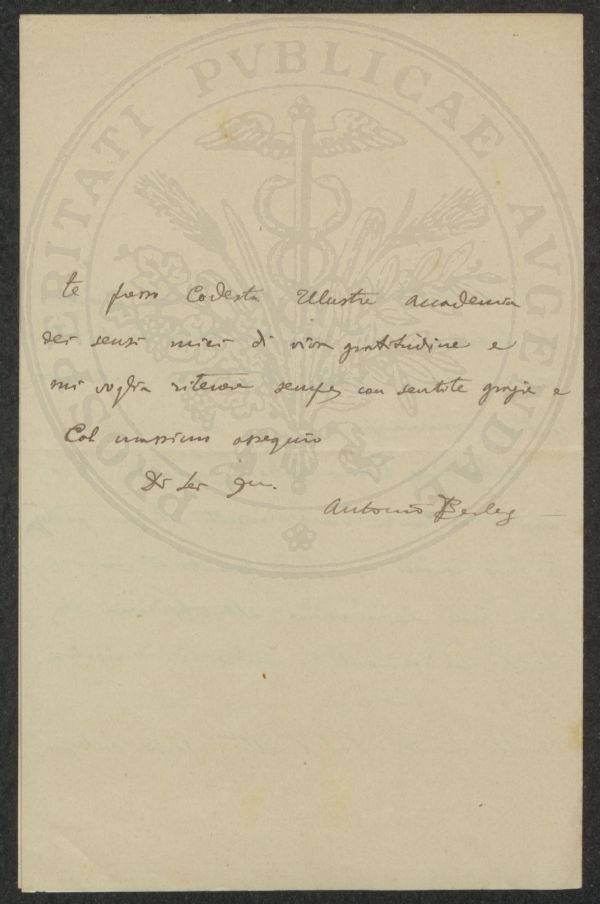 PROSPERITATI PVBLICAE AVGENDAE
te presso Codesta Illustre Accademia
dei sensi miei di viva gratitudine e
mi voglia ritenere sempre con sentite grazie e
Col massimo ossequio
Di Lei
Antonio Berlese